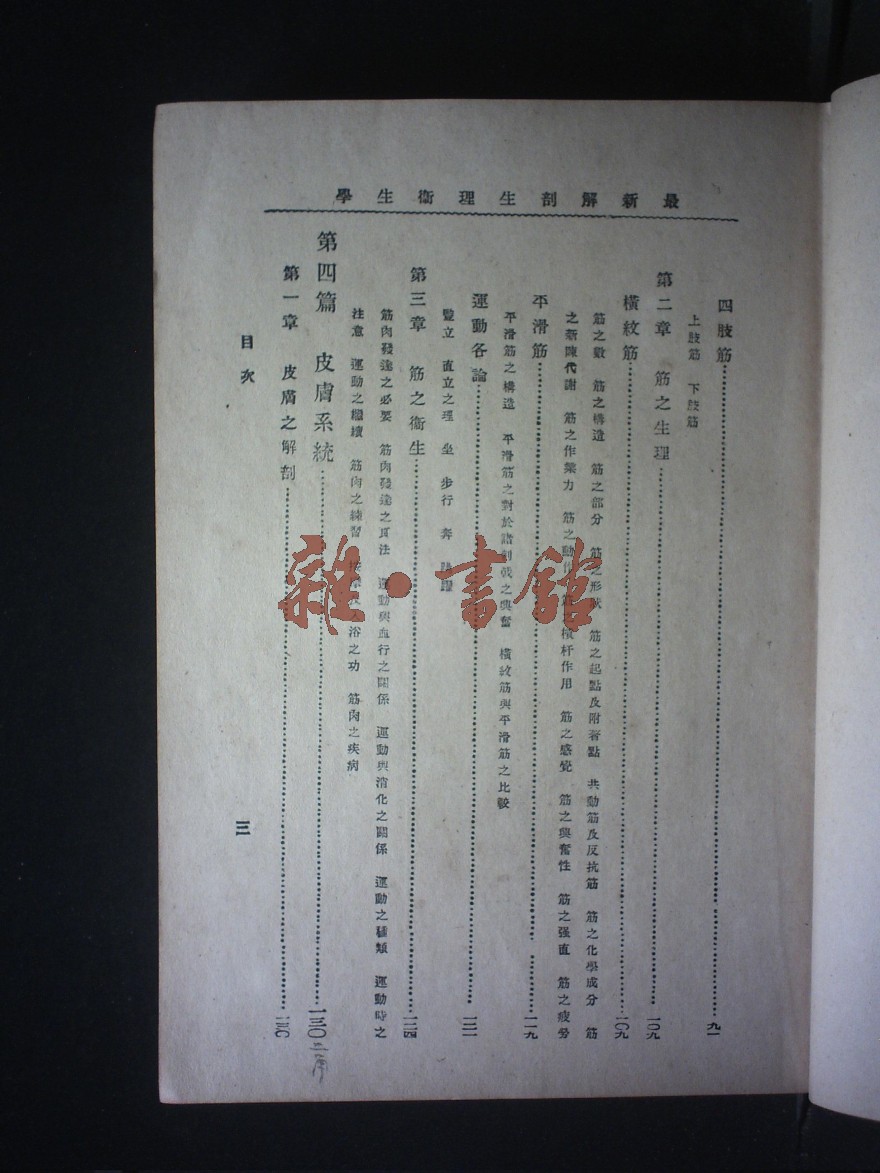 最新解剖生理衞生學
四肢筋 九一
上肢筋 下肢筋
第二章 筋之生理 一〇九
橫紋筋 一〇九
筋之數 筋之構造 筋之部分 筋之形狀 筋之起點及附著點 共動筋及反抗筋 筋之化學成分 筋
之新陳代謝 筋之作業力 筋之動作 橫杆作用 筋之感覺 筋之興奮性 筋之强直 筋之疲勞
平滑筋 一一九
平滑筋之構造 平滑筋之對於諸刺戟之興奮 橫紋筋與平滑筋之比較
運動各論 一二一
豎立 直立之理 坐 步行 奔 跳躍
第三章 筋之衞生 一二四
筋肉發達之必要 筋肉發達之眞法 運動與血行之關係 運動與消化之關係 運動之種類 運動時之
注意 運動之繼續 筋肉之練習 浴之功 筋肉之疾病
第四篇 皮膚系統 一三〇
第一章 皮膚之解剖 一三〇
目次
三
二角
雜·書館